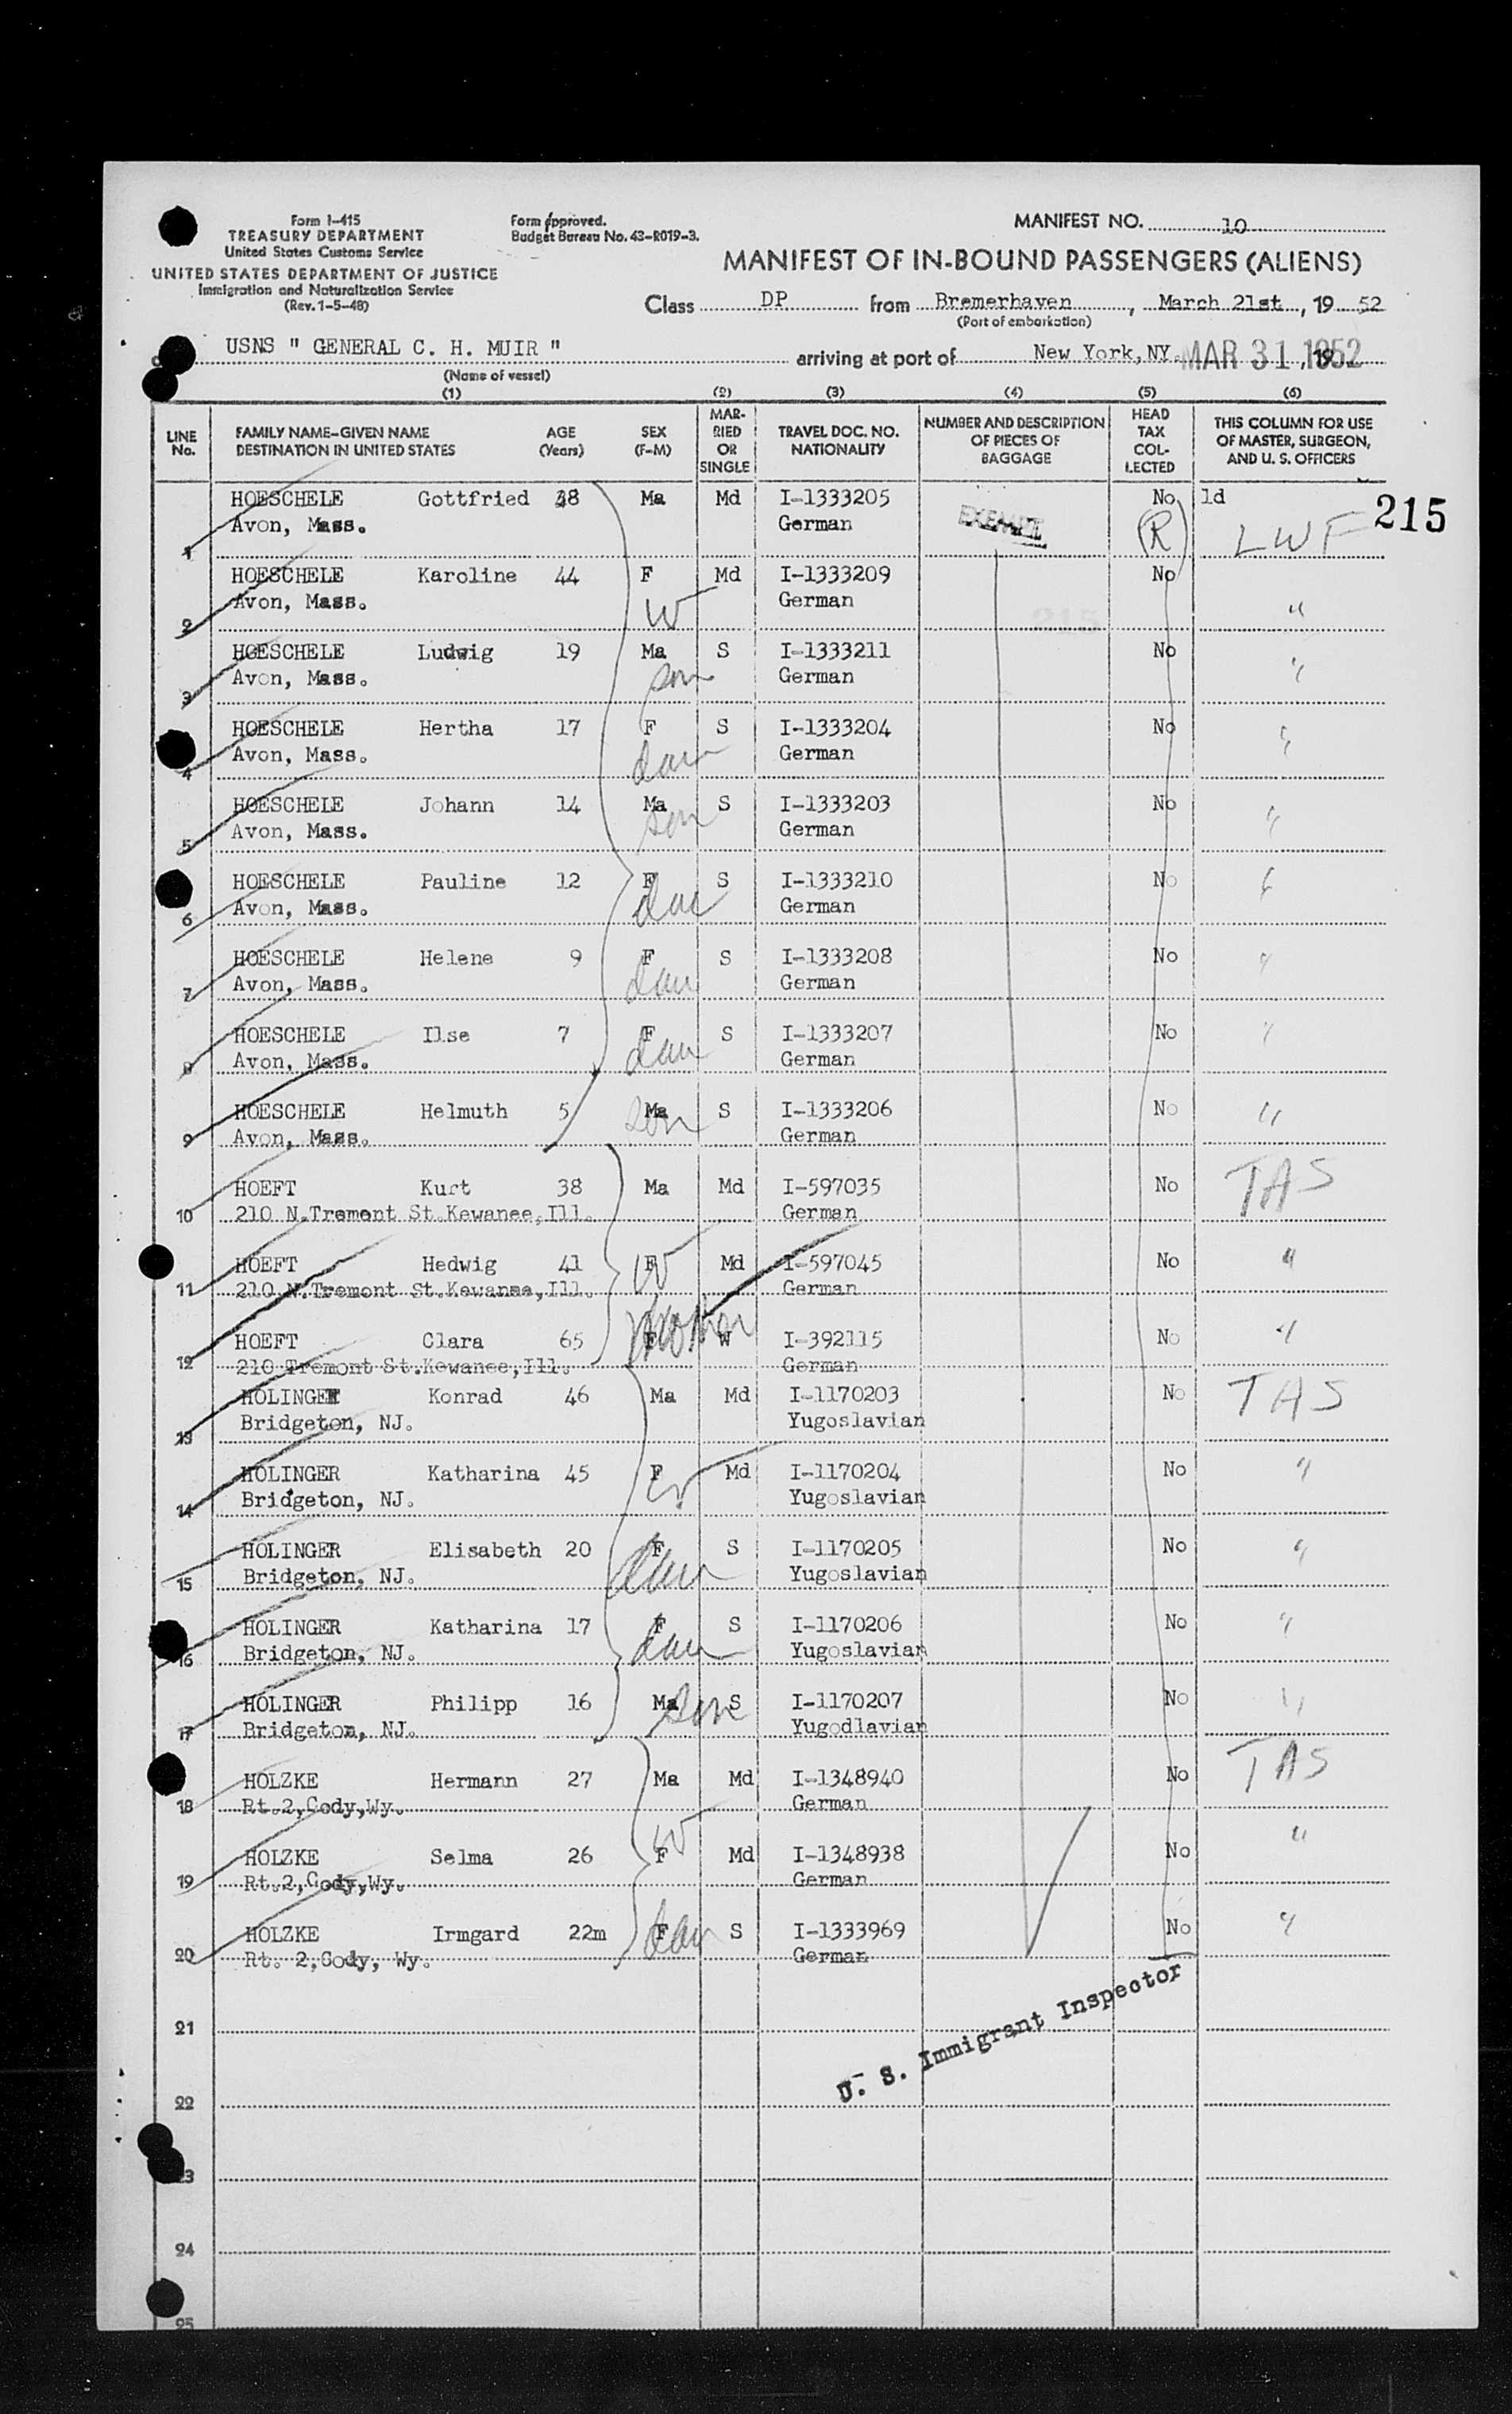 Form I-415
TREASURY DEPARTMENT
United States Customs Service
UNITED STATES DEPARTMENT OF JUSTICE
Immigration and Naturalization Service
(Rev. 1-5-48)
Form approved.
Budget Bureau No. 43-R019-3.
MANIFEST NO. 10
MANIFEST OF IN-BOUND PASSENGERS (ALIENS)
Class DP from Bremerhaven, March 21st, 19 52
(Port of embarkation)
USNS " GENERAL C. H. MUIR " arriving at port of New York, NY. MAR 31 1952, 19
(Name of vessel)
(1) (2) (3) (4) (5) (6)
LINE No. FAMILY NAME-GIVEN NAME DESTINATION IN UNITED STATES AGE (Years) SEX (F-M) MAR-RIED OR SINGLE TRAVEL DOC. NO. NATIONALITY NUMBER AND DESCRIPTION OF PIECES OF BAGGAGE HEAD TAX COL-LECTED THIS COLUMN FOR USE OF MASTER, SURGEON, AND U. S. OFFICERS
HOESCHELE Gottfried 38 Ma Md I-1333205 No 1d 215
1 Avon, Mass. German EXEMPT (R) LWF
HOESCHELE Karoline 44 F Md I-1333209 No
2 Avon, Mass. W German 215 "
HOESCHELE Ludwig 19 Ma S I-1333211 No
3 Avon, Mass. son German "
HOESCHELE Hertha 17 F S I-1333204 No
4 Avon, Mass. dau German "
HOESCHELE Johann 14 Ma S I-1333203 No
5 Avon, Mass. son German "
HOESCHELE Pauline 12 F S I-1333210 No
6 Avon, Mass. dau German "
HOESCHELE Helene 9 F S I-1333208 No
7 Avon, Mass. dau German "
HOESCHELE Ilse 7 F S I-1333207 No
8 Avon, Mass. dau German "
HOESCHELE Helmuth 5 Ma S I-1333206 No
9 Avon, Mass. son German "
HOEFT Kurt 38 Ma Md I-597035 No TAS
10 210 N.Tremont St.Kewanee,Ill. German
HOEFT Hedwig 41 F Md I-597045 No "
11 210 N.Tremont St.Kewanee,Ill. W German
HOEFT Clara 65 F W I-392115 No "
12 210 Tremont St.Kewanee,Ill. Mother German
HOLINGER Konrad 46 Ma Md I-1170203 No TAS
13 Bridgeton, NJ. Yugoslavian
HOLINGER Katharina 45 F Md I-1170204 No "
14 Bridgeton, NJ. W Yugoslavian
HOLINGER Elisabeth 20 F S I-1170205 No "
15 Bridgeton, NJ. dau Yugoslavian
HOLINGER Katharina 17 F S I-1170206 No "
16 Bridgeton, NJ. dau Yugoslavian
HOLINGER Philipp 16 Ma S I-1170207 No "
17 Bridgeton, NJ. son Yugodlavian
HOLZKE Hermann 27 Ma Md I-1348940 No TAS
18 Rt.2,Cody,Wy. German
HOLZKE Selma 26 F Md I-1348938 No "
19 Rt.2,Cody,Wy. W German
HOLZKE Irmgard 22m F S I-1333969 No "
20 Rt. 2,Cody, Wy. dau German
21
U. S. Immigrant Inspector
22
23
24
25